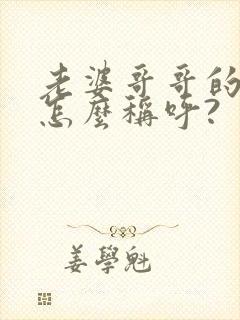 老婆哥哥的
怎麼稱呼?
姜學魁